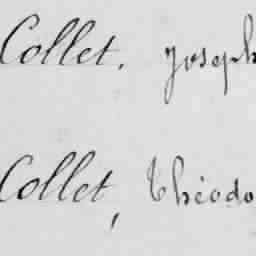 Collet. Joseph
Collet, Théodo